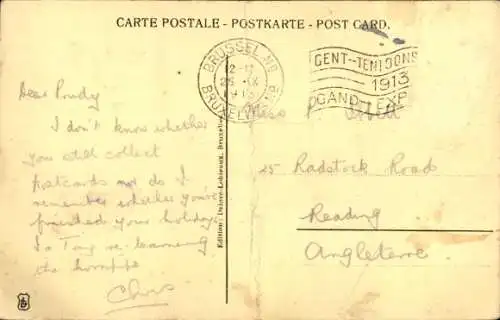 CARTE POSTALE - POSTKARTE - POST CARD.
BRUSSEL
BRUXELLES
GENT-TENTOONS
1913
GAND-EXP
Dear Prudy
I don't know whether
you still collect
postcards nor do I
remember whether you've
finished your holidays
Is Tony re-learning
the hornpipe
Chris
Edition: Bruxelles
Miss P
25 Radstock Road
Reading
Angleterre